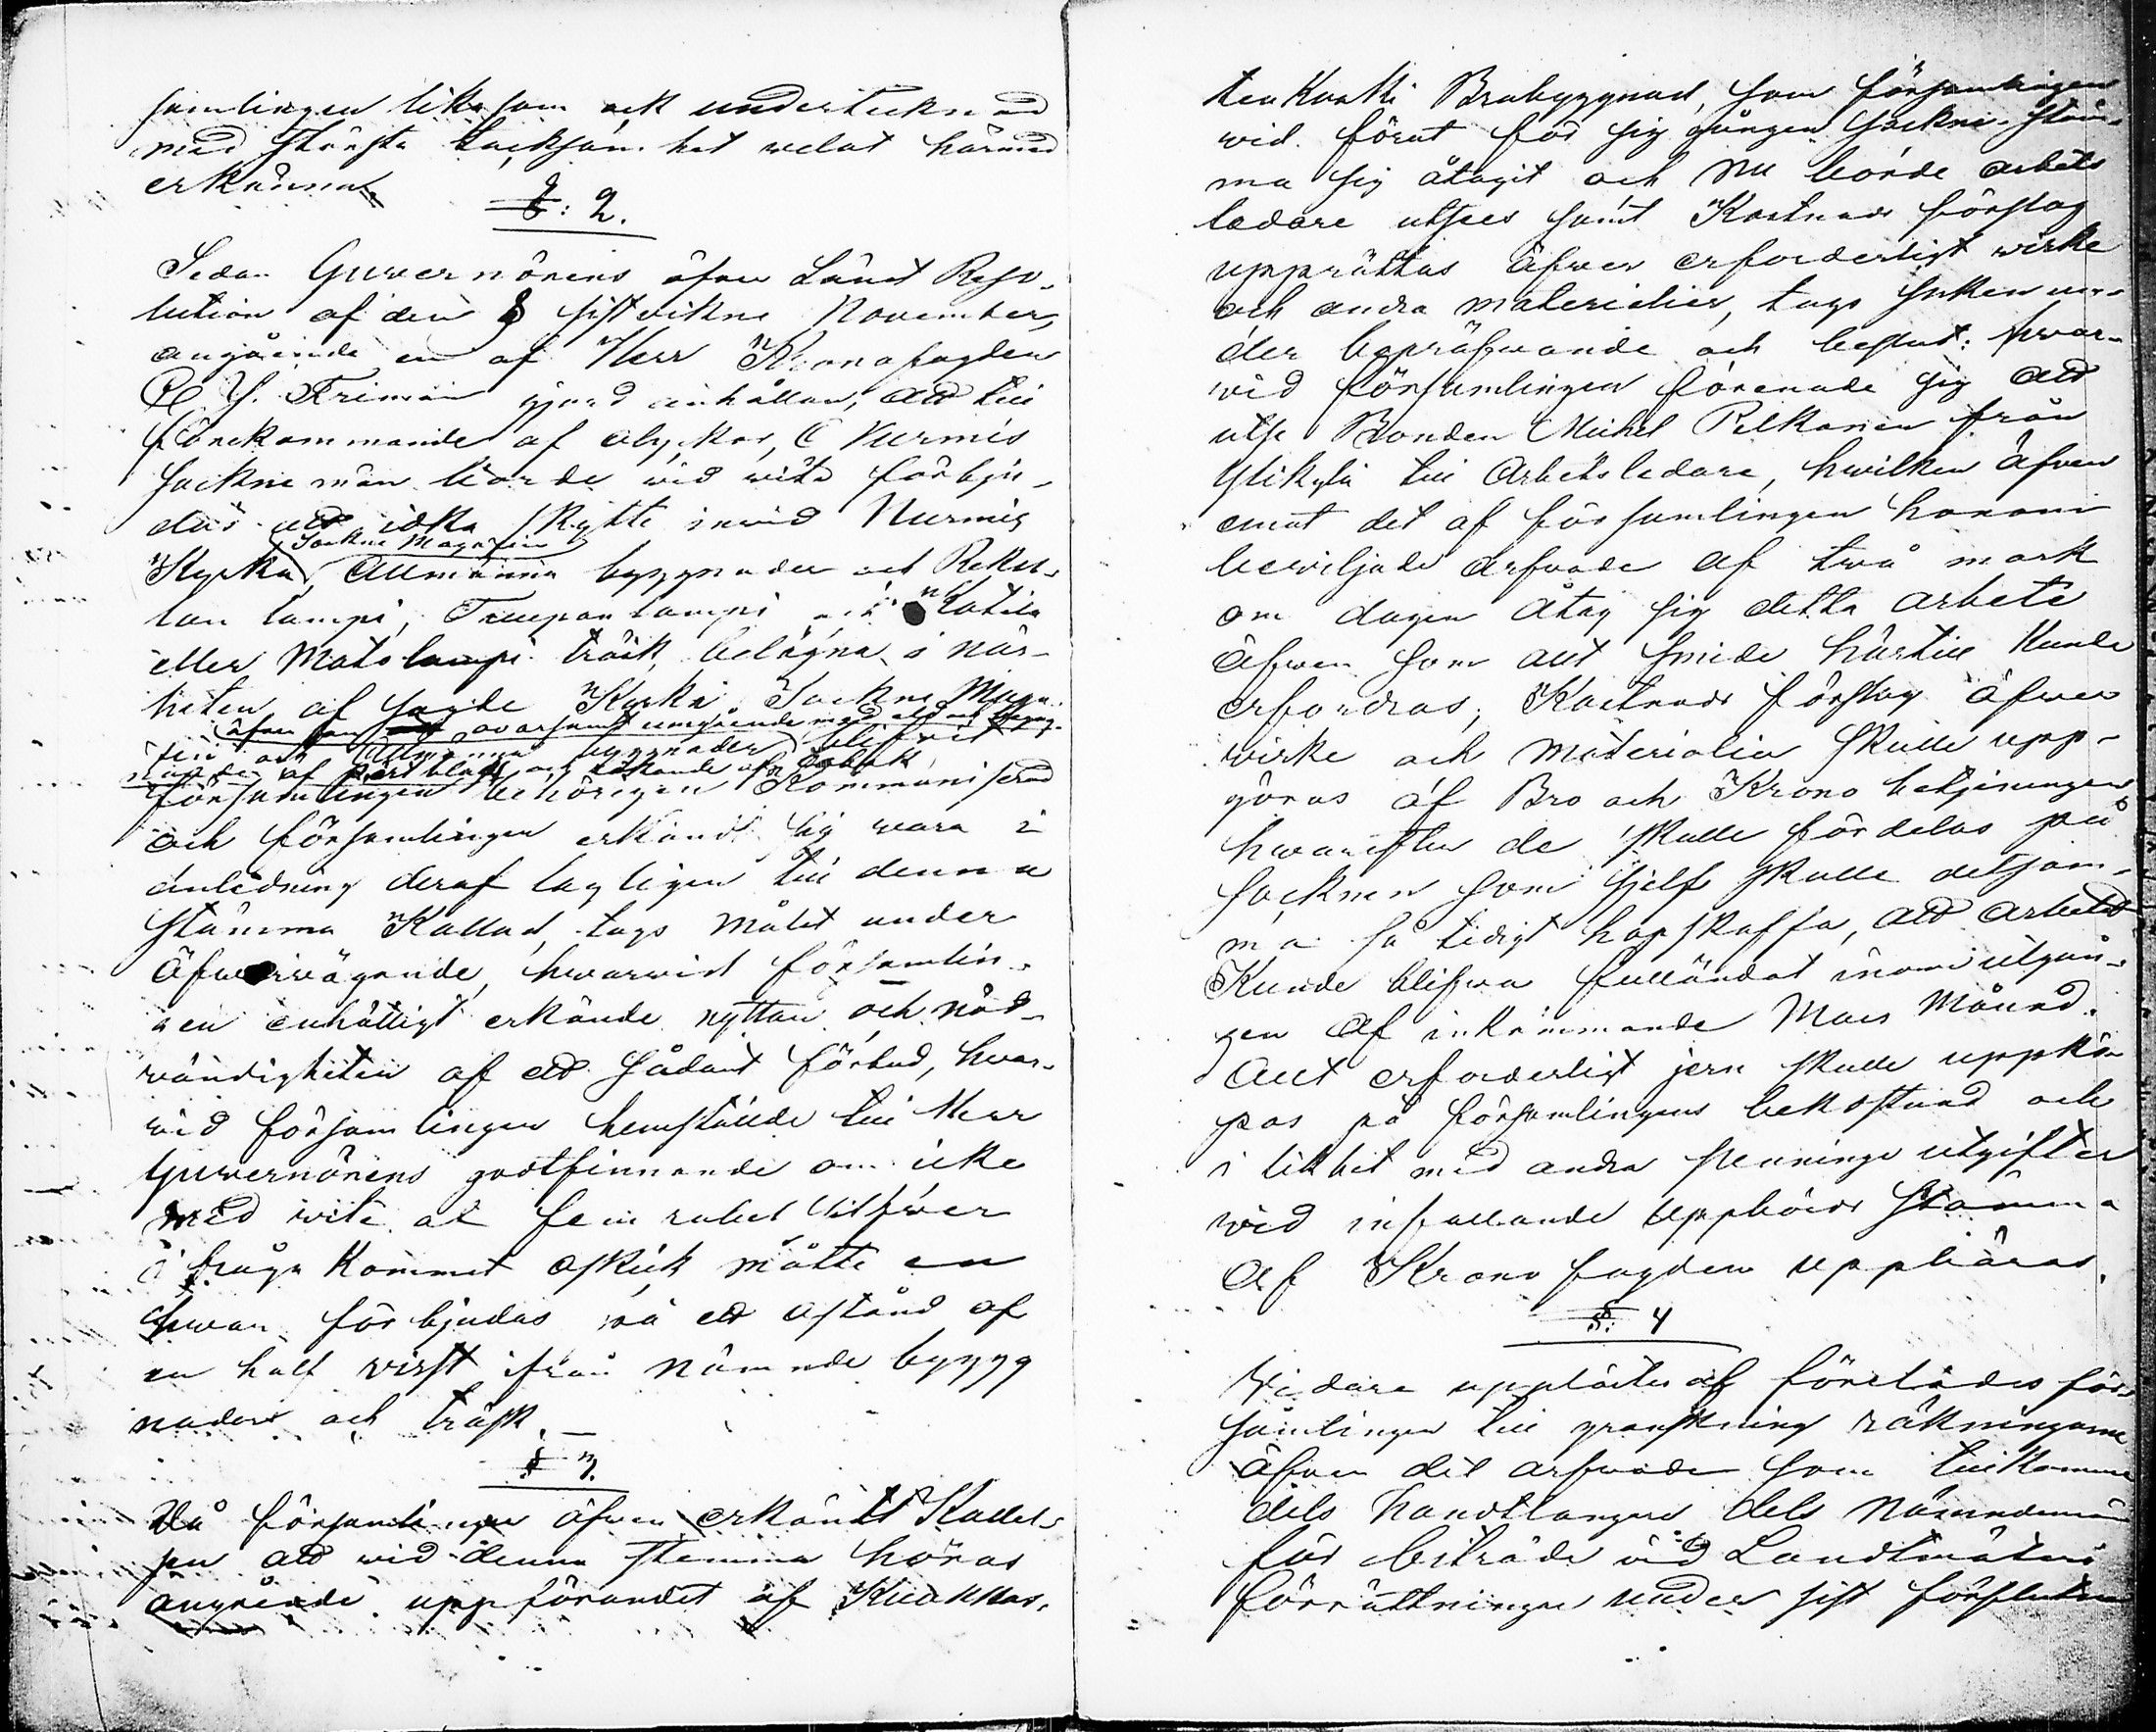 samlingen likasom ock undertecknad
med största tacksamhet velat härmed
erkänna.
§: 2.
Sedan Guvernörens öfver Länet Reso-
lution af den 8 sistvikne November,
angående en af Herr Kronofogden
Friman gjord anhållan, att till
förekommande af olyckor, Nurmis
Sockne män borde vid vite förbju-
das att idka skytte invid Nurmis
Sockne Magasin
Kyrka, Allmänna byggnader och
lampi, lampi och
eller Matolampi träsk, belägna i när-
heten af sagde Kyrka Sockne Maga-
äfven som ovarsamt umgående med eld och begag-
sin och Allmänna byggnader blifvit
nande af pertblåss och rökande af Tobak
församlingen behörigen Kommunicerad
och församlingen erkändt sig vara i
anledning deraf lagligen till denna
Stämma Kallad, togs målet under
öfvervägande, hvarvid församlin-
gen enhälligt erkände nyttan och nöd-
vändigheten af ett sådant förbud, hvar-
vid församlingen hemställde till Herr
Guvernörens godtfinnande om icke
med vite af fem rubel Silfver
i fråga kommet ofskick måtte en
hvar förbjudas på ett afstånd af
en half virst ifrån nämnde bygg
nader och träsk. —
§ 3.
Då församlingen äfven erkändt Kallel-
sen att vid denna stemma höras
angående uppförandet af
Brobyggnad, som församlingen
vid förut för sig gången Sockne-Stäm-
ma sig åtagit och nu borde arbets
ledare utses samt Kostnads förslag
upprättas öfver erforderligt virke
och andra materialier, togs saken un-
der bepröfvande och beslut: hvar-
vid församlingen förenade sig att
utse Bonden Michel Pelkonen från
Ylikylä till Arbetsledare, hvilken äfven
emot det af församlingen honom
beviljade arfvode af två mark
om dagen åtog sig detta arbete
äfven som allt smide härtill kunde
erfordras; Kostnads förslag öfver
virke och materialier skulle upp-
göras af Bro och Krono betjeningen
hvarefter de skulle fördelas på
Socknen som sjelf skulle detsam-
ma så tidigt hopskaffa, att arbetet
Kunde blifva fulländat inom utgån-
gen af inkommande Mars Månad.
Allt erforderligt jern skulle uppkö-
pas på församlingens bekostnad och
i likhet med andra pennings utgifter
vid infallande Uppbörds Stämma
af Kronofogden uppbäras.
§: 4
Vidare upplästes och förelades för-
samlingen till granskning räkningarne
öfver det arfvode som tillkomme
dels handtlangare dels Nämndemän
för biträde vid Landtmäteri
förrättningar under sist förflutne